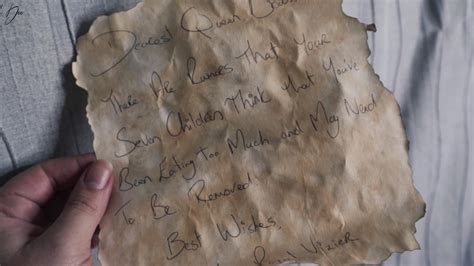 Dearest Queen
There Are Rumors That Your
Seven Children Think that You've
Been Eating Too Much and May Need
To Be Removed
Best Wishes,
Royal Vizier